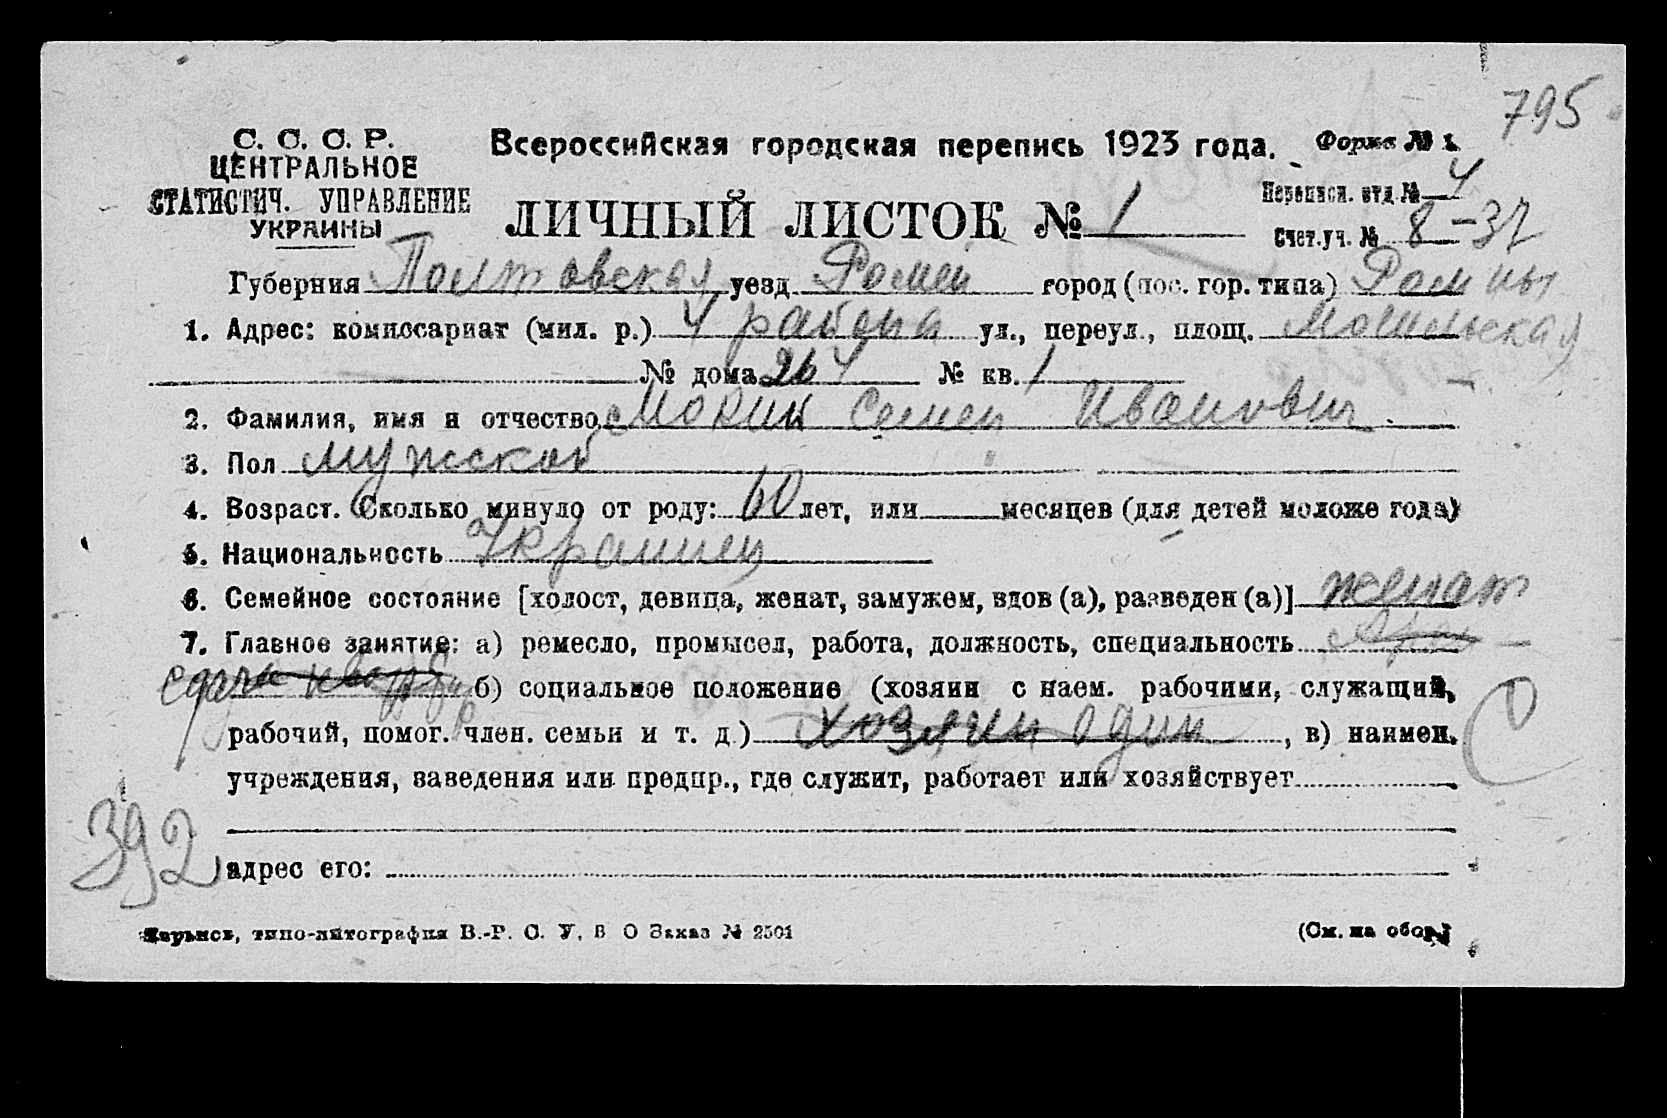 795
С. С. С. Р.
ЦЕНТРАЛЬНОЕ
СТАТИСТИЧ. УПРАВЛЕНИЕ
УКРАИНЫ
Всероссийская городская перепись 1923 года.
Форма № 1.
ЛИЧНЫЙ ЛИСТОК № 1
Переписн. отд. № 4
Счет. уч. № 8-37
Губерния Полтовская уезд Ромен город (пос. гор. типа) Ромны
1. Адрес: комиссариат (мил. р.) 4 района ул., переул., площ.
№ дома 264 № кв. 1
2. Фамилия, имя и отчество Мокин Семен Иванович
3. Пол мужской
4. Возраст. Сколько минуло от роду: 60 лет, или месяцев (для детей моложе года)
5. Национальность Украинец
6. Семейное состояние [холост, девица, женат, замужем, вдов (а), разведен (а)] женат
7. Главное занятие: а) ремесло, промысел, работа, должность, специальность
сдача б) социальное положение (хозяин с наем. рабочими, служащий,
рабочий, помог. член. семьи и т. д.) хозяин один, в) наимен.
учреждения, заведения или предпр., где служит, работает или хозяйствует
392
адрес его:
Харьков, типо-литография В.-Р. С. У. В О Заказ № 2501
(См. на обор.)